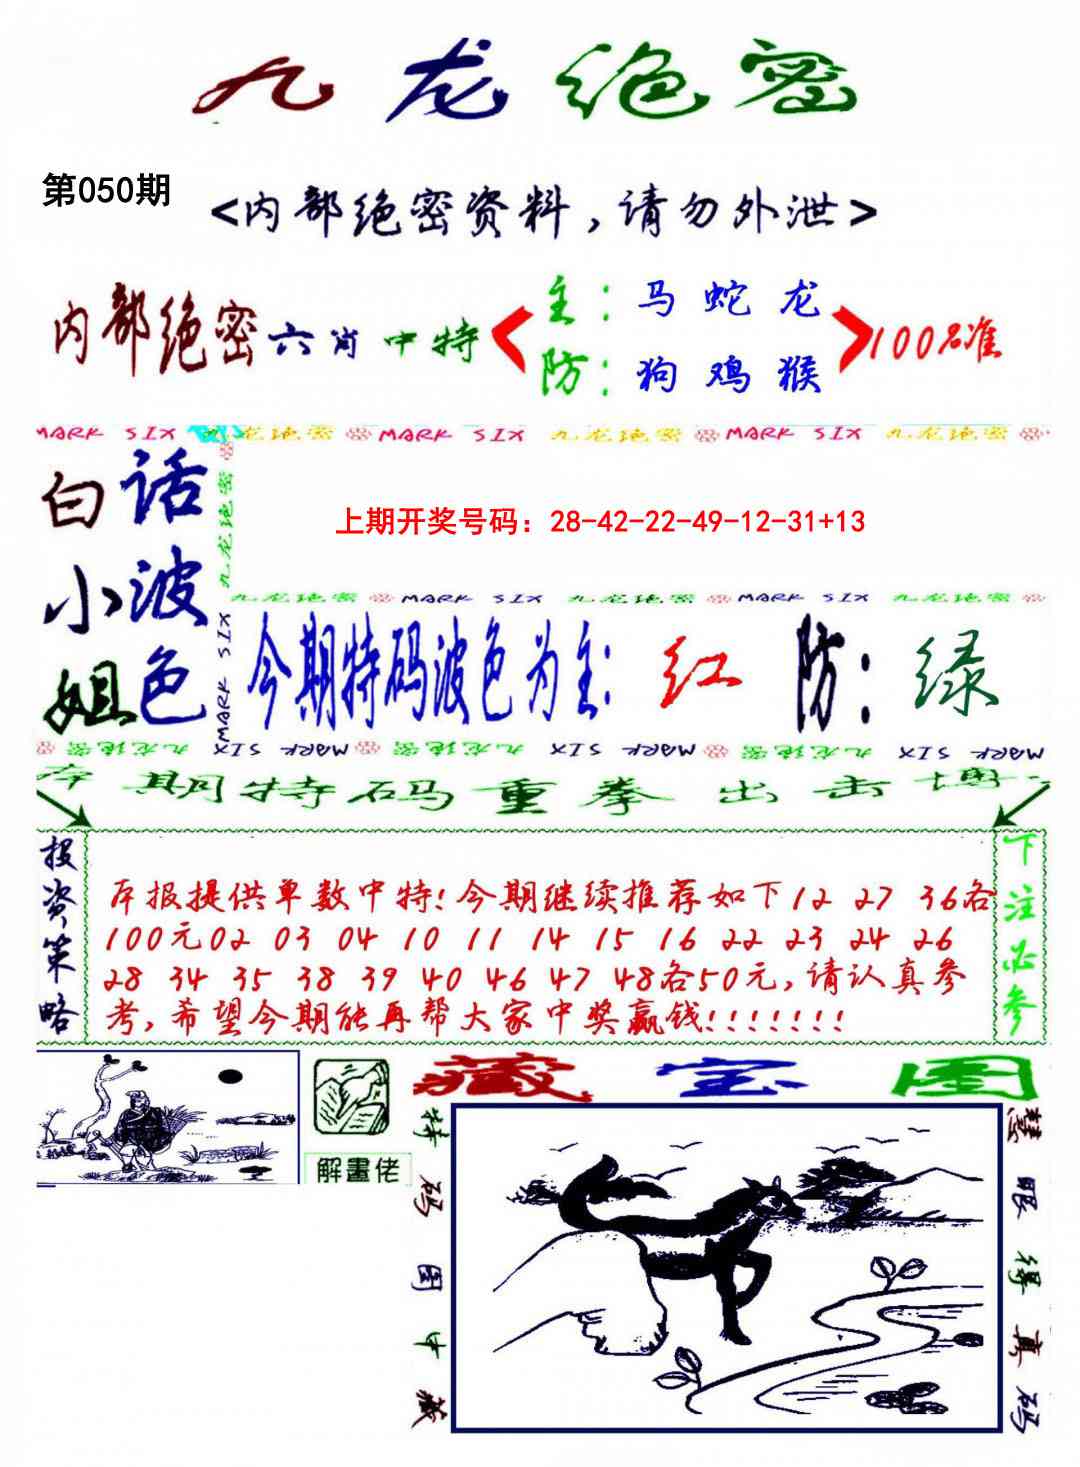 九龙绝密
第050期
<内部绝密资料,请勿外泄>
内部绝密六肖中特
主:马蛇龙
防:狗鸡猴
100%准
MARK SIX 九龙绝密 MARK SIX 九龙绝密 MARK SIX 九龙绝密
白小姐
话波色
九龙绝密
MARK SIX
上期开奖号码：28-42-22-49-12-31+13
九龙绝密 MARK SIX 九龙绝密 MARK SIX 九龙绝密
今期特码波色为主:红 防:绿
九龙绝密 MARK SIX 九龙绝密 MARK SIX 九龙绝密 MARK SIX
本期特码重拳出击博
投资策略
本报提供单数中特!今期继续推荐如下12 27 36各
100元02 03 04 10 11 14 15 16 22 23 24 26
28 34 35 38 39 40 46 47 48各50元,请认真参
考,希望今期能再帮大家中奖赢钱!!!!!!!
下注必参
解畫佬
藏宝图
特码图中藏
慧眼得真码